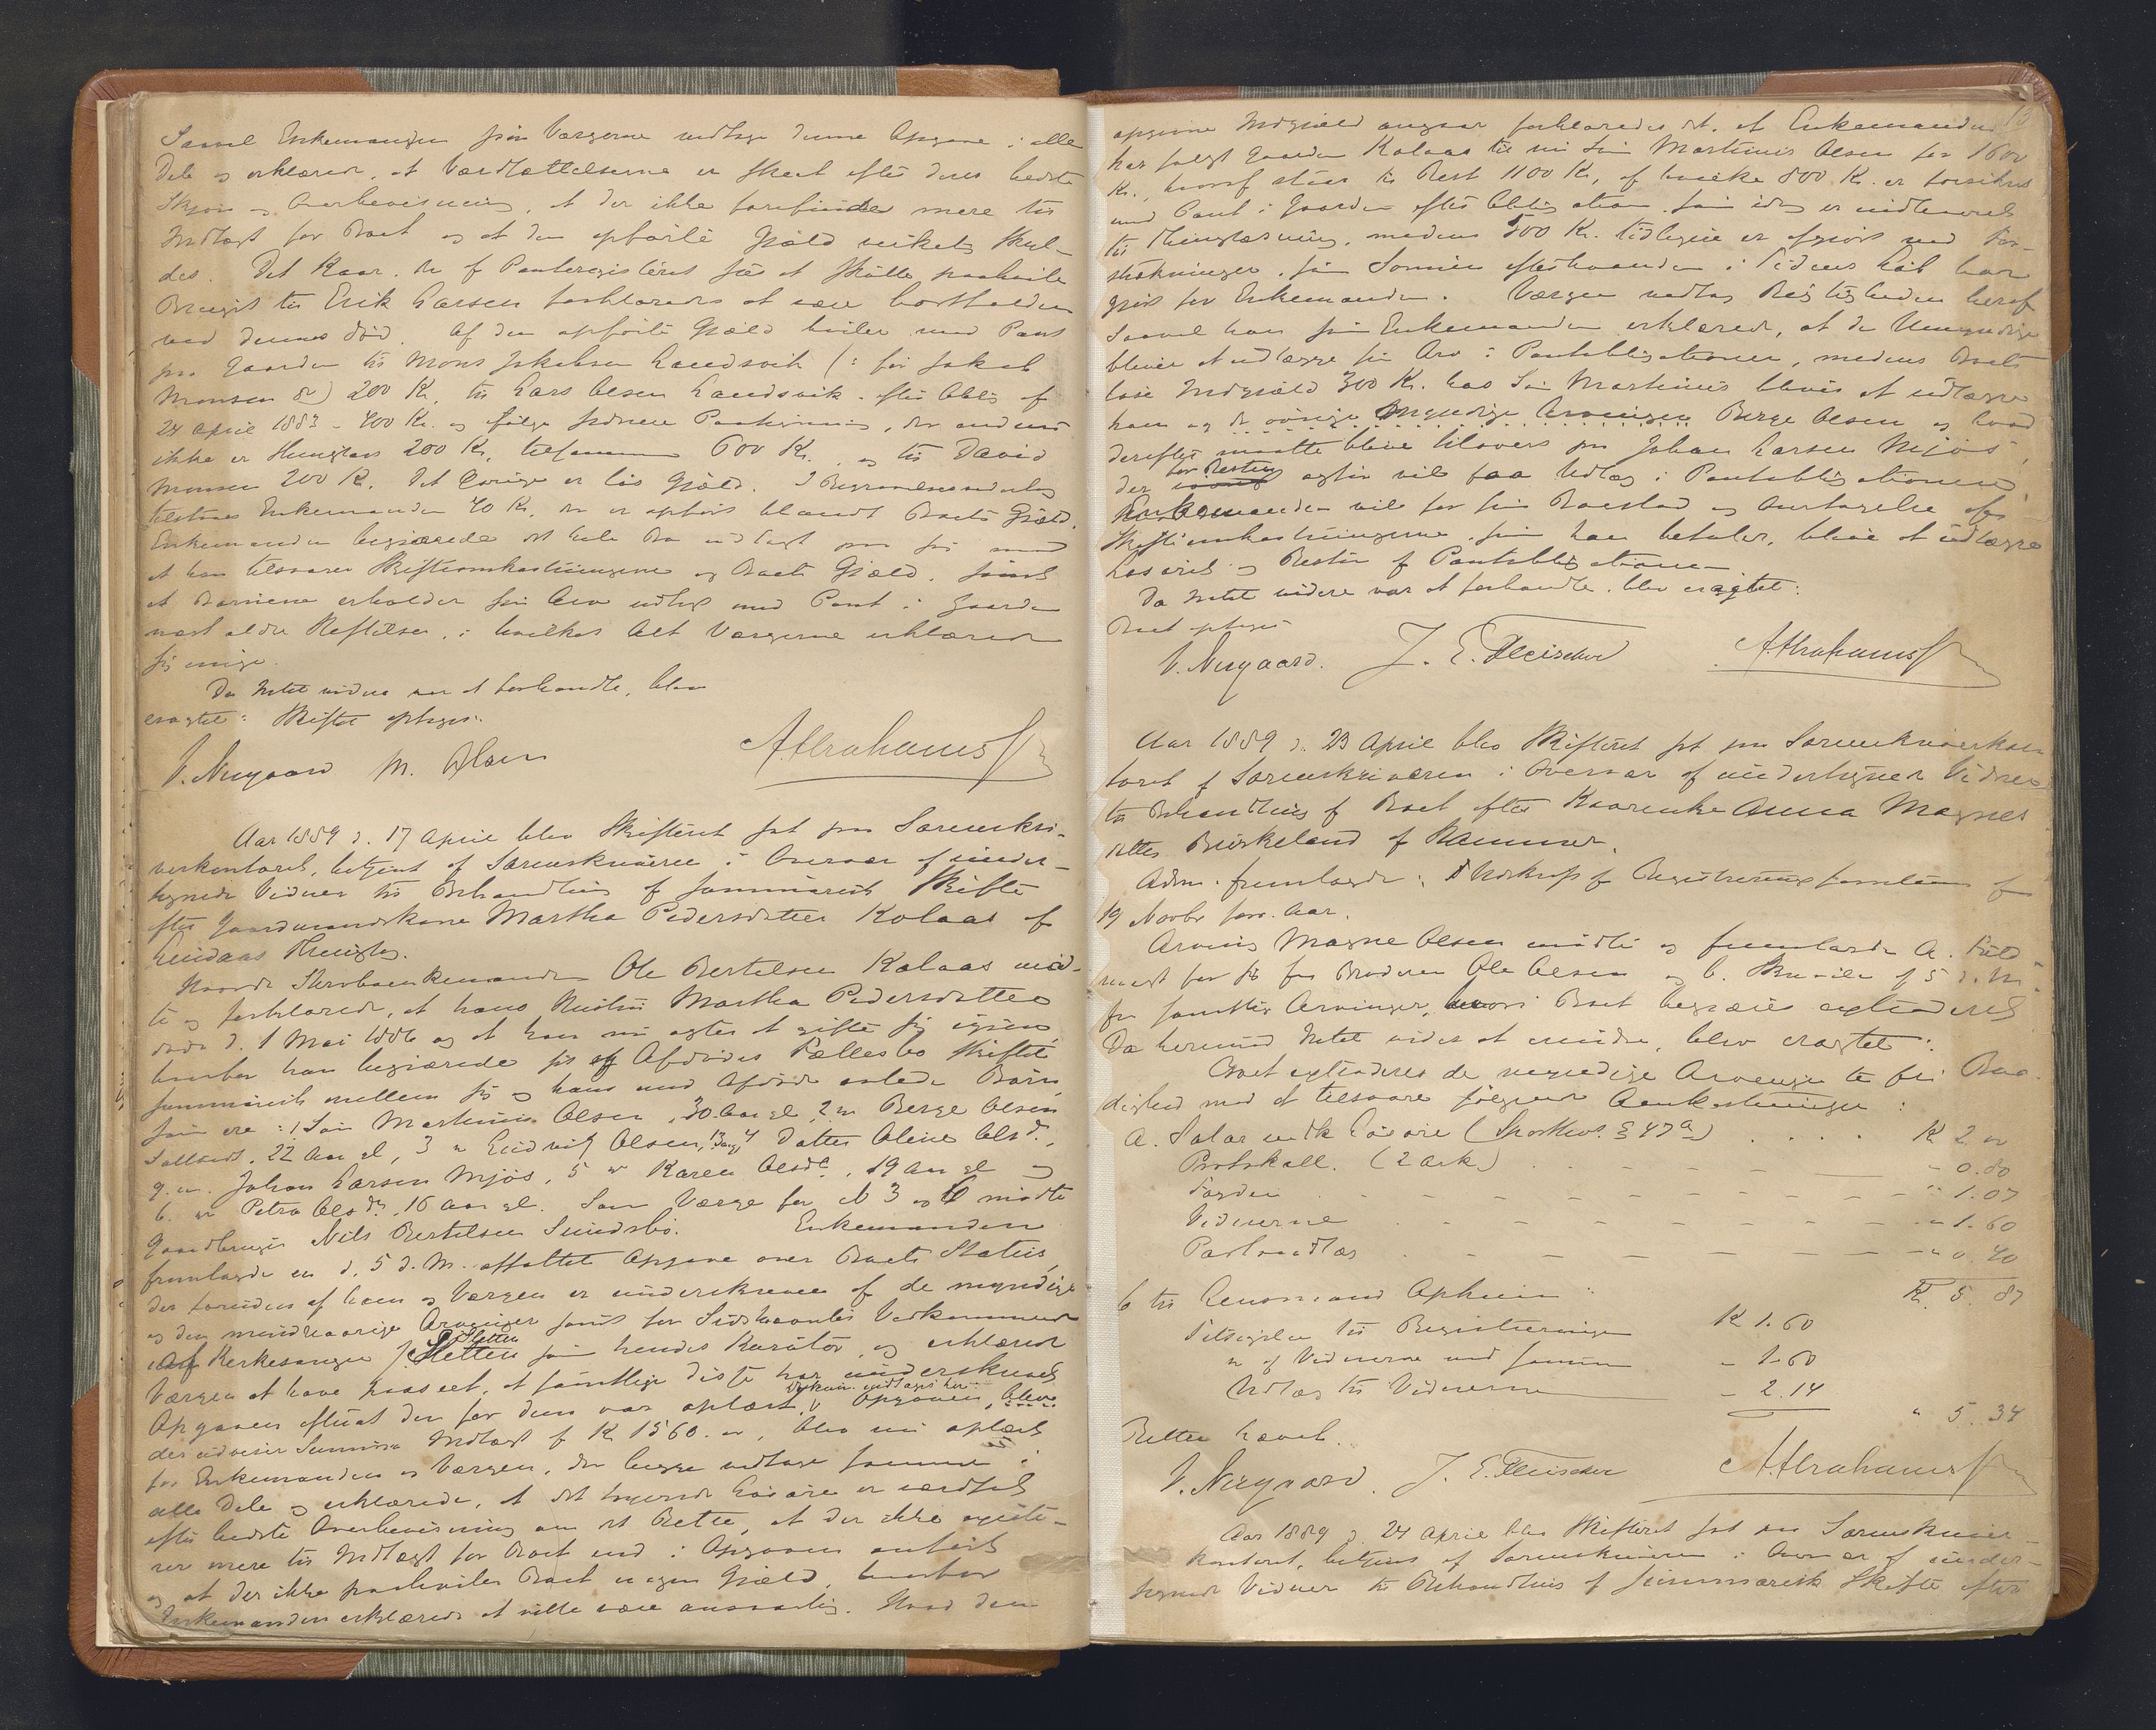 Saavel Enkemanden som Værgerne vedtage denne Opgave i alle
Dele og erklærede, at Værdsættelserne er skeet efter deres bedste
Skjøn og Overbeviisning, at der ikke forefindes mere til
Indtægt for Boet og at den opførte Gjæld virkelig skyl-
des. Det Kaar, der af Panteregisteret sees at skulle paahvile
Bruget til Erik Larsen forklaredes at være bortfalden
ved dennes Død. Af den opførte Gjæld hviler med Pant
paa Gaarden til Mons Jakobsen Landsvik (: før Jakob
Monsen :) 200 Kr, til Lars Olsen Landsvik efter Oblig af
24 April 1883 - 400 Kr. og ifølge senere Paategning, der endnu
ikke er thinglæst 200 Kr, tilsammen 600 Kr. og til David
Monsen 200 Kr. Det Øvrige er løs Gjæld. I Begravelsesudlæg
tilstaaes Enkemanden 40 Kr, der er opført blandt Boets Gjæld.
Enkemanden begjærede det hele Bo udlagt paa sig mod
at han tilsvarer Skifteomkostningerne og Boets Gjæld, samt
at Børnene erholder sin Arv udlagt med Pant i Gaarden
næst ældre Heftelser, i hvilket Alt Værgerne erklærede
sig enige.
Da Intet videre var at forhandle, blev
eragtet: Skiftet optages.
V. Neegaard M. Olsen Abrahams
Aar 1889 d. 17 April blev Skifteret sat paa Sorenskri-
verkontoret, betjent af Sorenskriveren i Overvær af under-
tegnede Vidner til Behandling af summarisk Skifte
efter Gaardmandskone Martha Pedersdatter Kolaas af
Lindaas Thinglag.
Hendes Efterladte Enkemand Ole Bertelsen Kolaas mød-
te og forklarede, at hans Hustru Martha Pedersdatter
døde d. 1 Mai 1886 og at han nu agter at gifte sig igjen,
hvorfor han begjærede sit og Afdødes Fællesbo skiftet
summarisk mellem sig og hans med Afdøde avlede Børn
som ere: 1, Søn Martinus Olsen, 30 Aar gl, 2 " Berge Olsen
Soltvedt, 22 Aar gl, 3 " Ludvig Olsen, 13 Aar, 4 Datter Oline Olsdr.,
g. m. Johan Larsen Mjøs, 5 " Karen Olsdr, 19 Aar gl og
6. " Petra Olsdr., 16 Aar gl. Som Værge for No 3 og 6 mødte
Gaardbruger Nils Bertelsen Sundsbø. Enkemanden
fremlagde en d. 5 d. M. affattet Opgave over Boets Status,
der foruden af ham og Værgen er underskreven af de myndige
og den mindreaarige Arvinger samt for Sidstnævntes Vedkommende
af Kirkesanger J. Sletten som hendes Kurator, og erklærede
Værgen at have paaseet, at samtlige disse har underskrevet
Opgaven efterat den for dem var oplæst. Opgaven,
der udviser Summa Indtægt Kr 1560. -, blev nu oplæst
for Enkemanden og Værgen, der begge vedtage samme i
alle Dele og erklærede, at det tagende Løsøre er værdsat
efter bedste Overbeviisning om det Rette, at der ikke existe-
rer mere til Indtægt for Boet end i Opgaven anført
og at der ikke paahviler Boet nogen Gjæld, hvorfor
Enkemanden erklærede at ville være ansvarlig. Hvad den
opgivne Indgjæld angaar forklaredes det, at Enkemanden
har solgt Gaarden Kolaas til sin Søn Martinus Olsen for 1600
Kr., hvoraf staar til Rest 1100 Kr, af hvilke 800 Kr. er forsikret
med Pant i Gaarden efter Obligation, som idag er indleveret
til Thinglæsning, medens 500 Kr. tidligere er afgjort ved For-
strækninger, som Sønnen efterhaanden i Tidens Løb har
gjort for Enkemanden. Værgen vedtog Rigtigheden heraf
Saavel han som Enkemanden erklærede, at de Umyndige
bliver at udlægge sin Arv i Pantobligationen, medens Boets
løse Indgjæld 300 Kr. hos Søn Martinus bliver at udlægge
ham og de øvrige myndige Arvinger Berge Olsen og hvad
derefter maatte blive tilovers paa Johan Larsen Mjøs,
der for Resten agter vil faa Udlæg i Pantobligationen.
Enkemanden vil for sin Boeslod og Overtagelse af
Skifteomkostningerne, som han betaler, blive at udlægge
Løsøret og Resten af Pantobligationen
Da Intet videre var at forhandle, blev eragtet:
Boet optages
V. Neegaard. J. E. Fleischer Abrahams
Aar 1889 d. 23 April blev Skifteret sat paa Sorenskriverkon-
toret af Sorenskriveren i Overvær af undertegnede Vidner
til Behandling af Boet efter Kaarenke Anna Magnes-
datter Birkeland af Hammer.
Adm. fremlagde: Udskrift af Registreringsforretning af
19 Novbr forr. Aar.
Arving Magne Olsen mødte og fremlagde A. Fuld-
magt for sig fra Broderen Ole Olsen og b. Bevile af 5 d. M.
fra samtlige Arvinger, hvori Boet begjæres extraderet
Da hermed Intet videre at erindre, blev eragtet:
Boet extraderes de myndige Arvinger til fri Raa-
dighed mod at tilsvare følgende Omkostninger:
a. Salar incl. Løsøre (Sportlovs. § 47 a) . . . . K 2 "
Protokoll. (2 Ark) - - - - - " 0.80
Forden . - - - - - - " 1.07
Vidnerne . - - - - - " 1.60
Postindlæg . - - - - - " 0.40
K. 5. 87
b til Lensmand Aphein:
Tilsigelse til Registreringen K 1.60
" af Vidnerne ved samme " 1.60
Udlæg til Vidnerne " 2.14
" 5. 34
Retten hævet.
V. Neegaard. J. E. Fleischer Abrahams
Aar 1889 d. 24 April blev Skifteret sat paa Sorenskriver-
kontoret, betjent af Sorenskriveren i Overvær af under-
tegnede Vidner til Behandling af summarisk Skifte efter